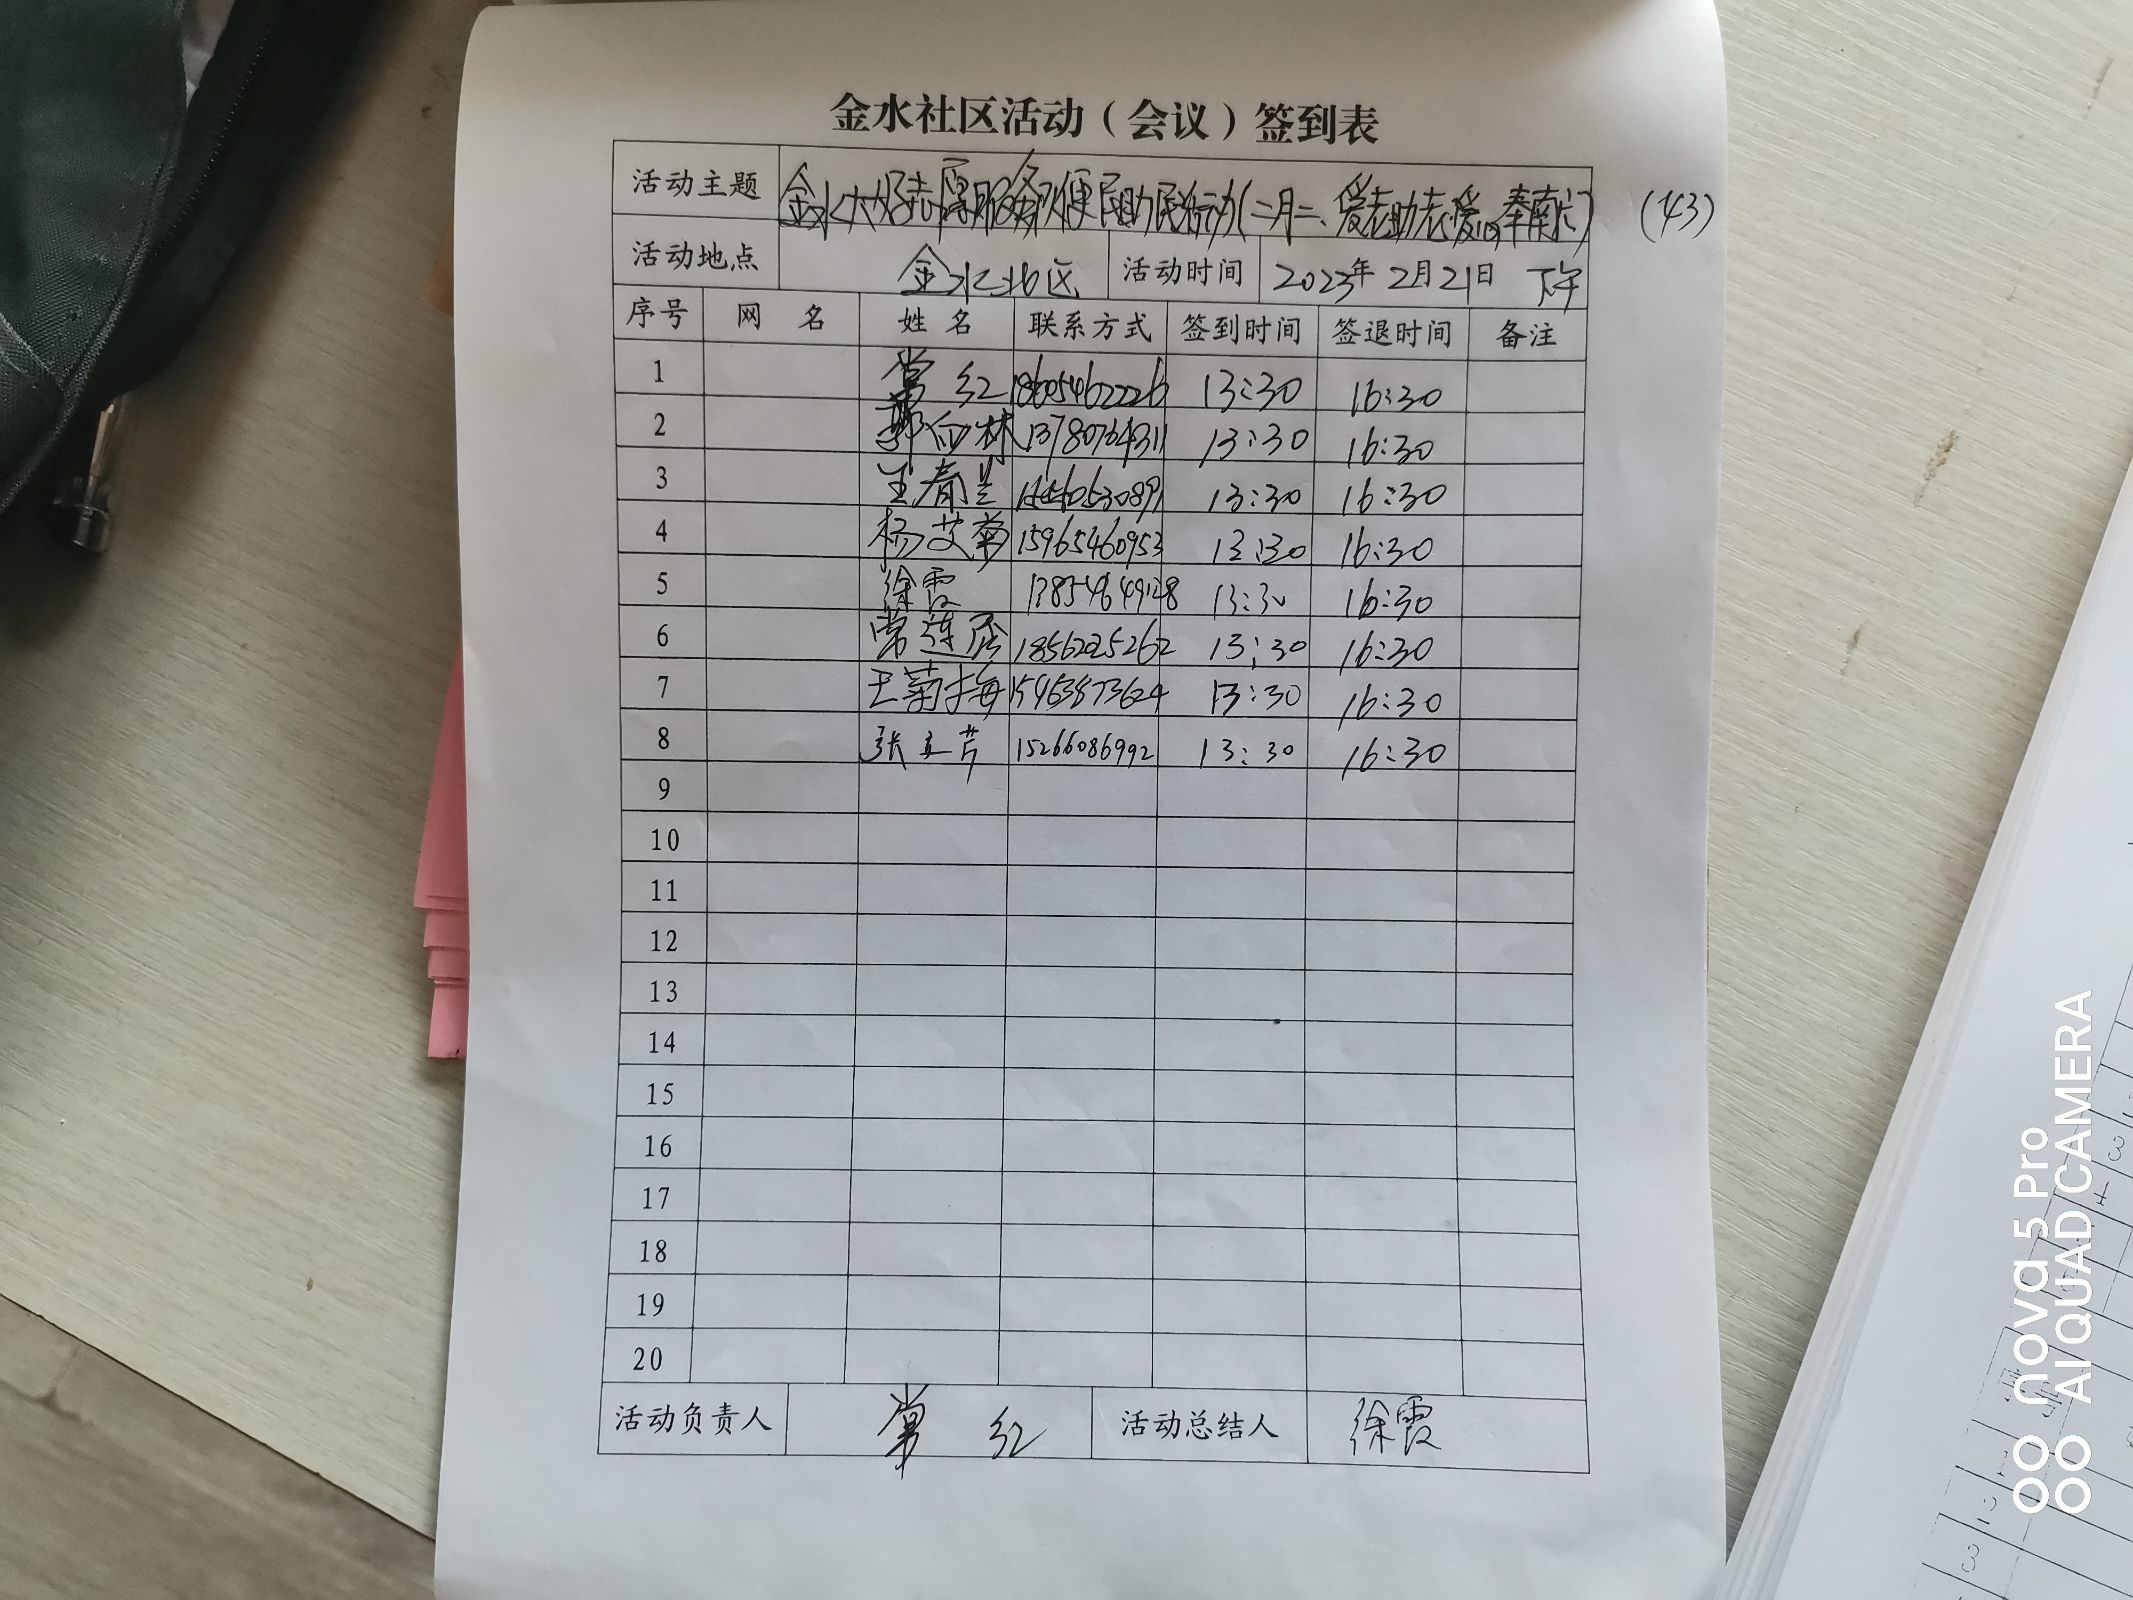 金水社区活动（会议）签到表
活动主题 金水大好志愿服务队便民助民活动(二月二、爱老助老 (43)
活动地点 金水北区 活动时间 2023年2月21日 下午
序号 网 名 姓 名 联系方式 签到时间 签退时间 备注
1 常红 18605462226 13:30 16:30
2 郭向林 13780764311 13:30 16:30
3 王春兰 13:30 16:30
4 杨艾菊 15965460953 13:30 16:30
5 徐霞 13854649128 13:30 16:30
6 常莲 13:30 16:30
7 王菊梅 13:30 16:30
8 张立芳 15266086992 13:30 16:30
9
10
11
12
13
14
15
16
17
18
19
20
活动负责人 常红 活动总结人 徐霞
nova 5 Pro
AI QUAD CAMERA